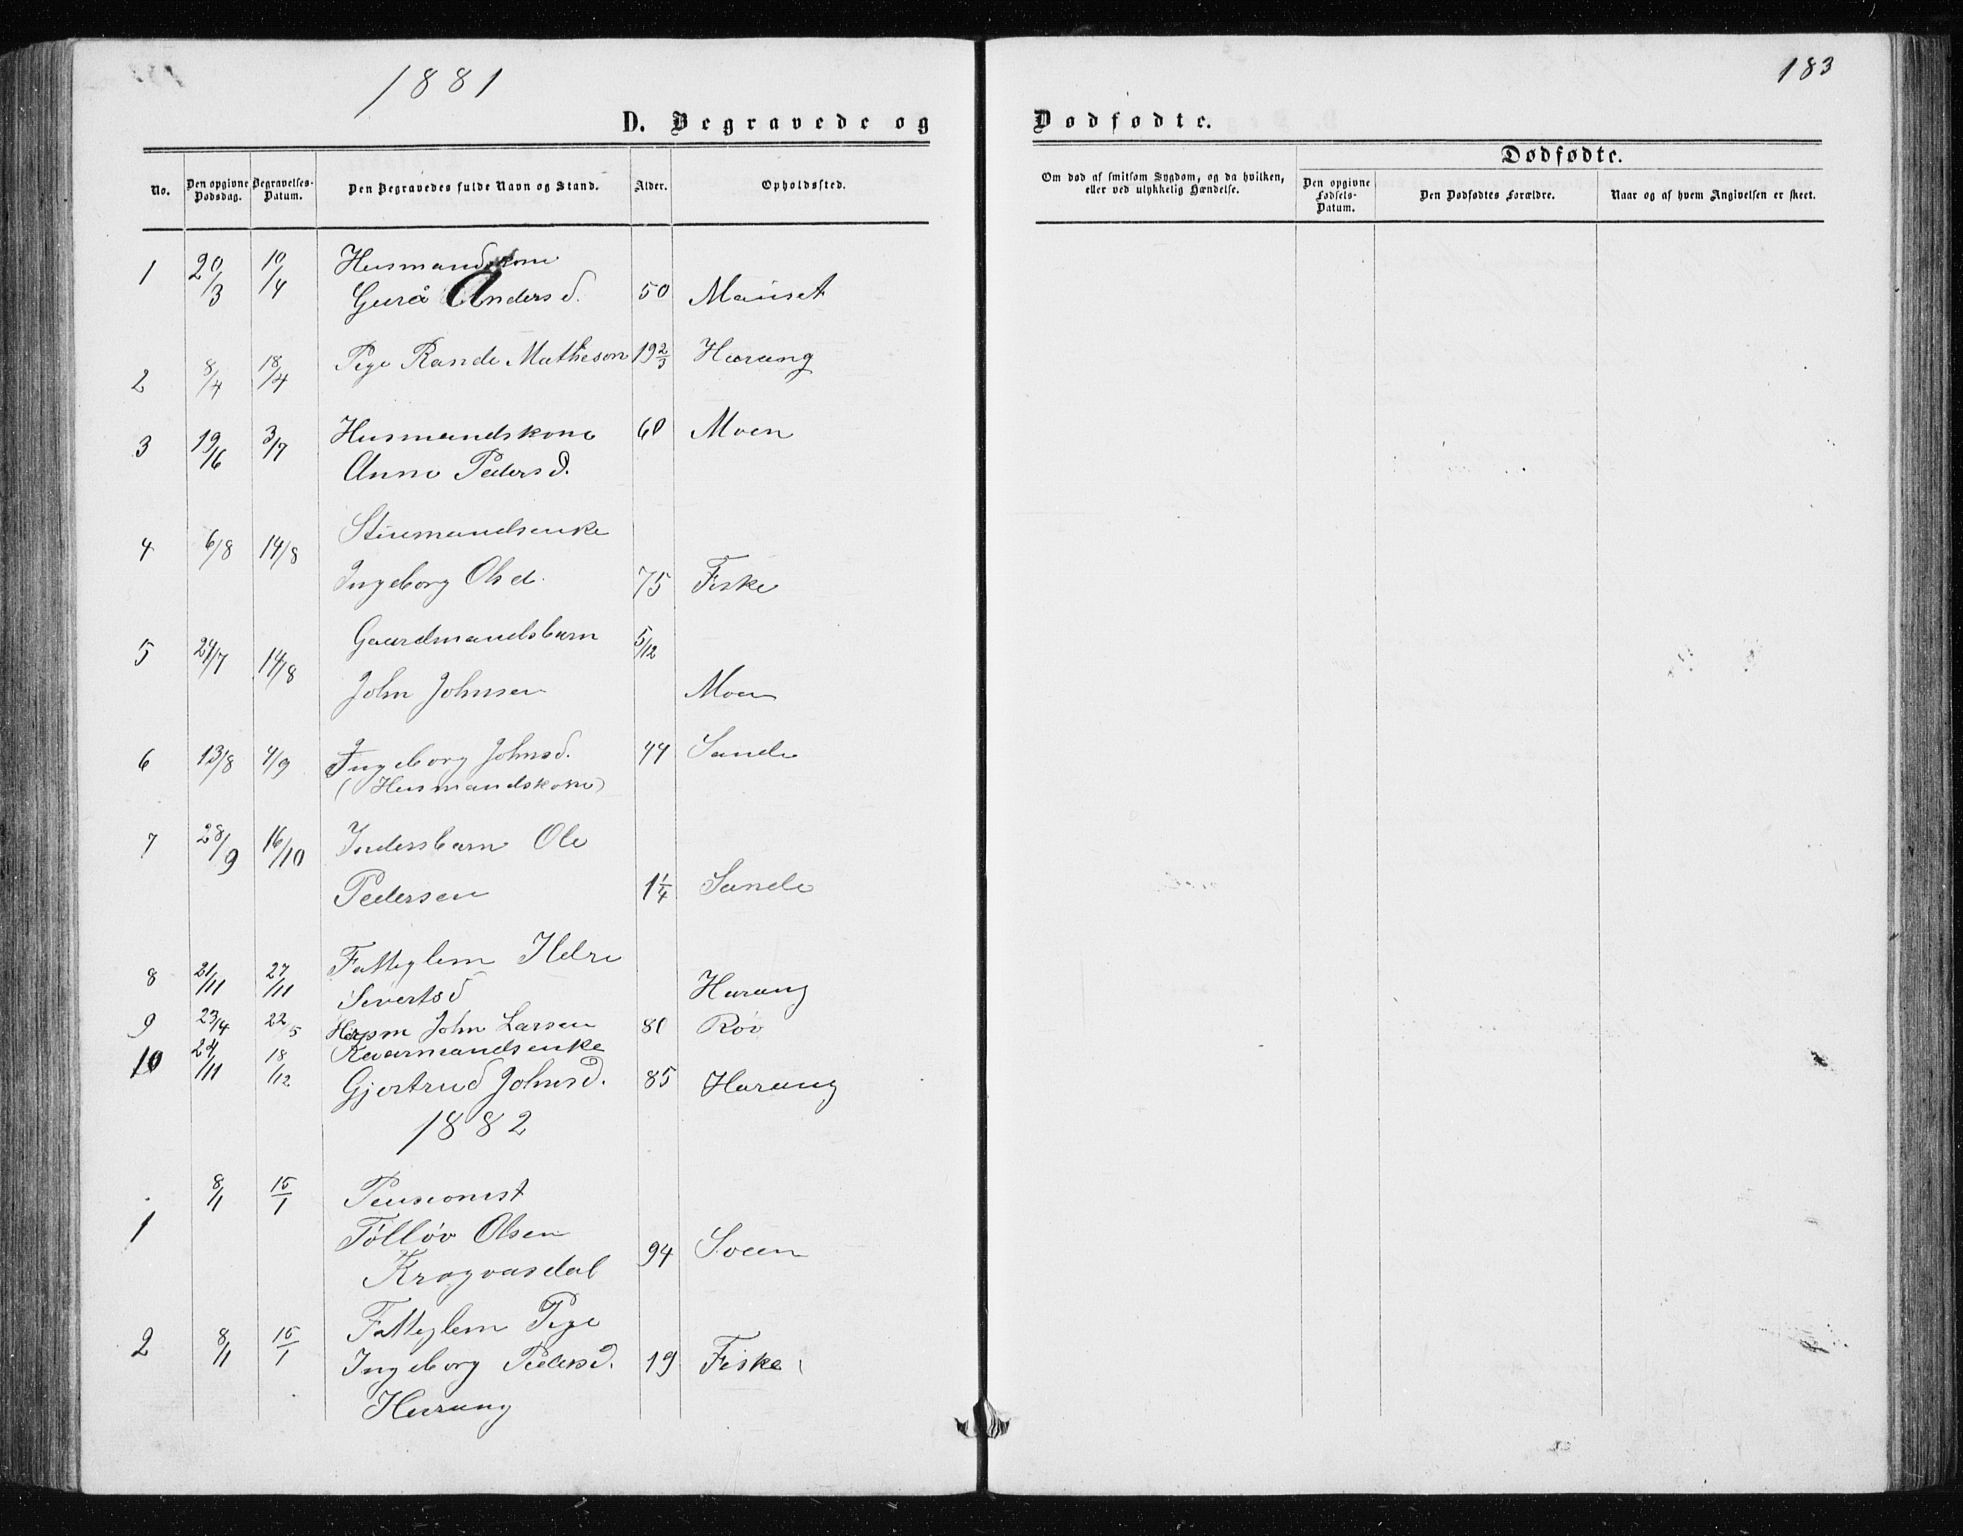 1881
183
D. Begravede og Dødfødte.
Dødfødte.
No.
Den opgivne Dødsdag.
Begravelses-Datum.
Den Begravedes fulde Navn og Stand.
Alder.
Opholdssted.
Om død af smitsom Sygdom, og da hvilken, eller ved ulykkelig Hændelse.
Den opgivne Fødsels-Datum.
Den Dødfødtes Forældre.
Naar og af hvem Angivelsen er skeet.
1 20/3 10/4 Husmandskone
Gurå Andersd. 50 Mauset
2 8/4 18/4 Pige Rande Matheson 19 2/3 Harang
3 19/6 3/7 Husmandskone 60 Moen
Anne Pedersd.
4 6/8 14/8
Ingeborg Olsd. 75 Fiske
5 24/7 14/8 Gaardmandsbarn 5/12
John Johnsen Moen
6 13/8 4/9 Ingeborg Johnsd. 44 Sande
(Husmandskone)
7 28/9 16/10 Inderstbarn Ole
Pedersen 1 1/4 Sande
8 21/11 27/11 Fatteglem
Sivertsd Harang
9 23/4 22/5 John Larsen 80 Røv
10 24/11 18/12 Kaarmandsenke
Gjertrud Johnsd. 85 Harang
1882
1 8/1 15/1 Pensionist
Tølløv Olsen
Kragvasdal 94 Sveen
2 8/1 15/1 Fatteglem Pige
Ingeborg Pedersd. 19 Fiske
Harang